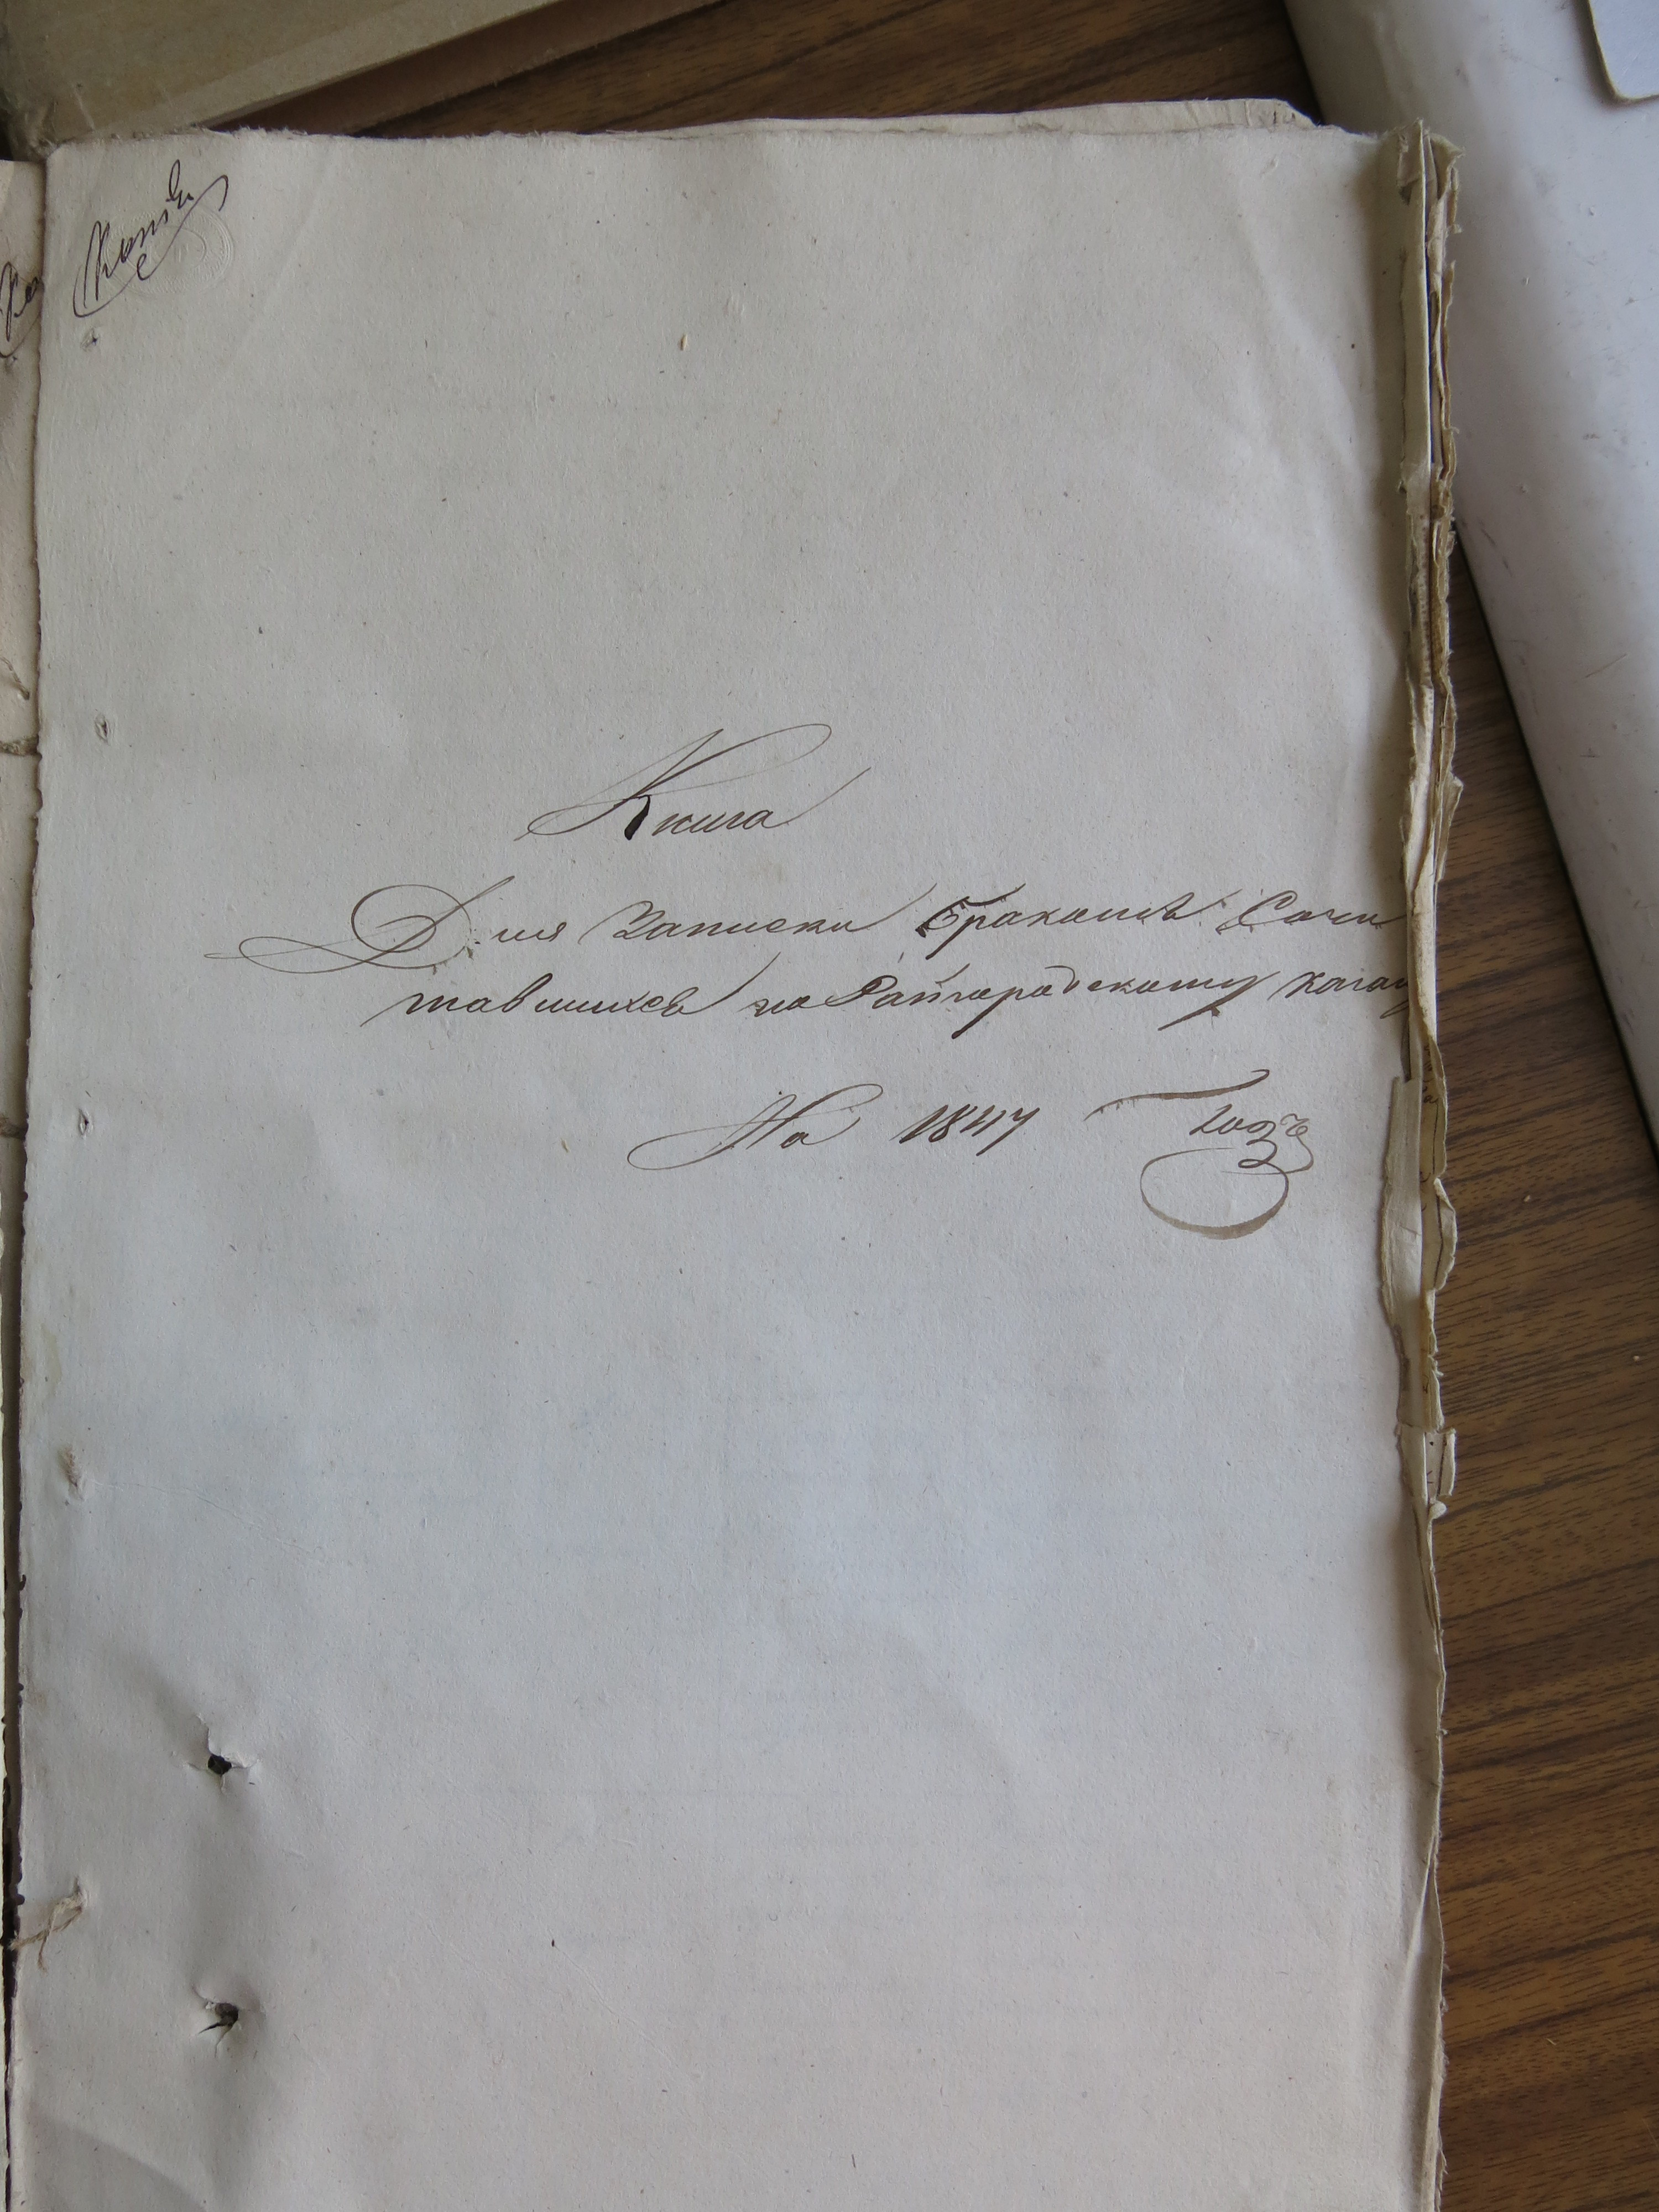 Копія
Книга
Для Записки Бракомъ Сочи
тавшихся по Райгородскому кагалу
На 1847 Годъ